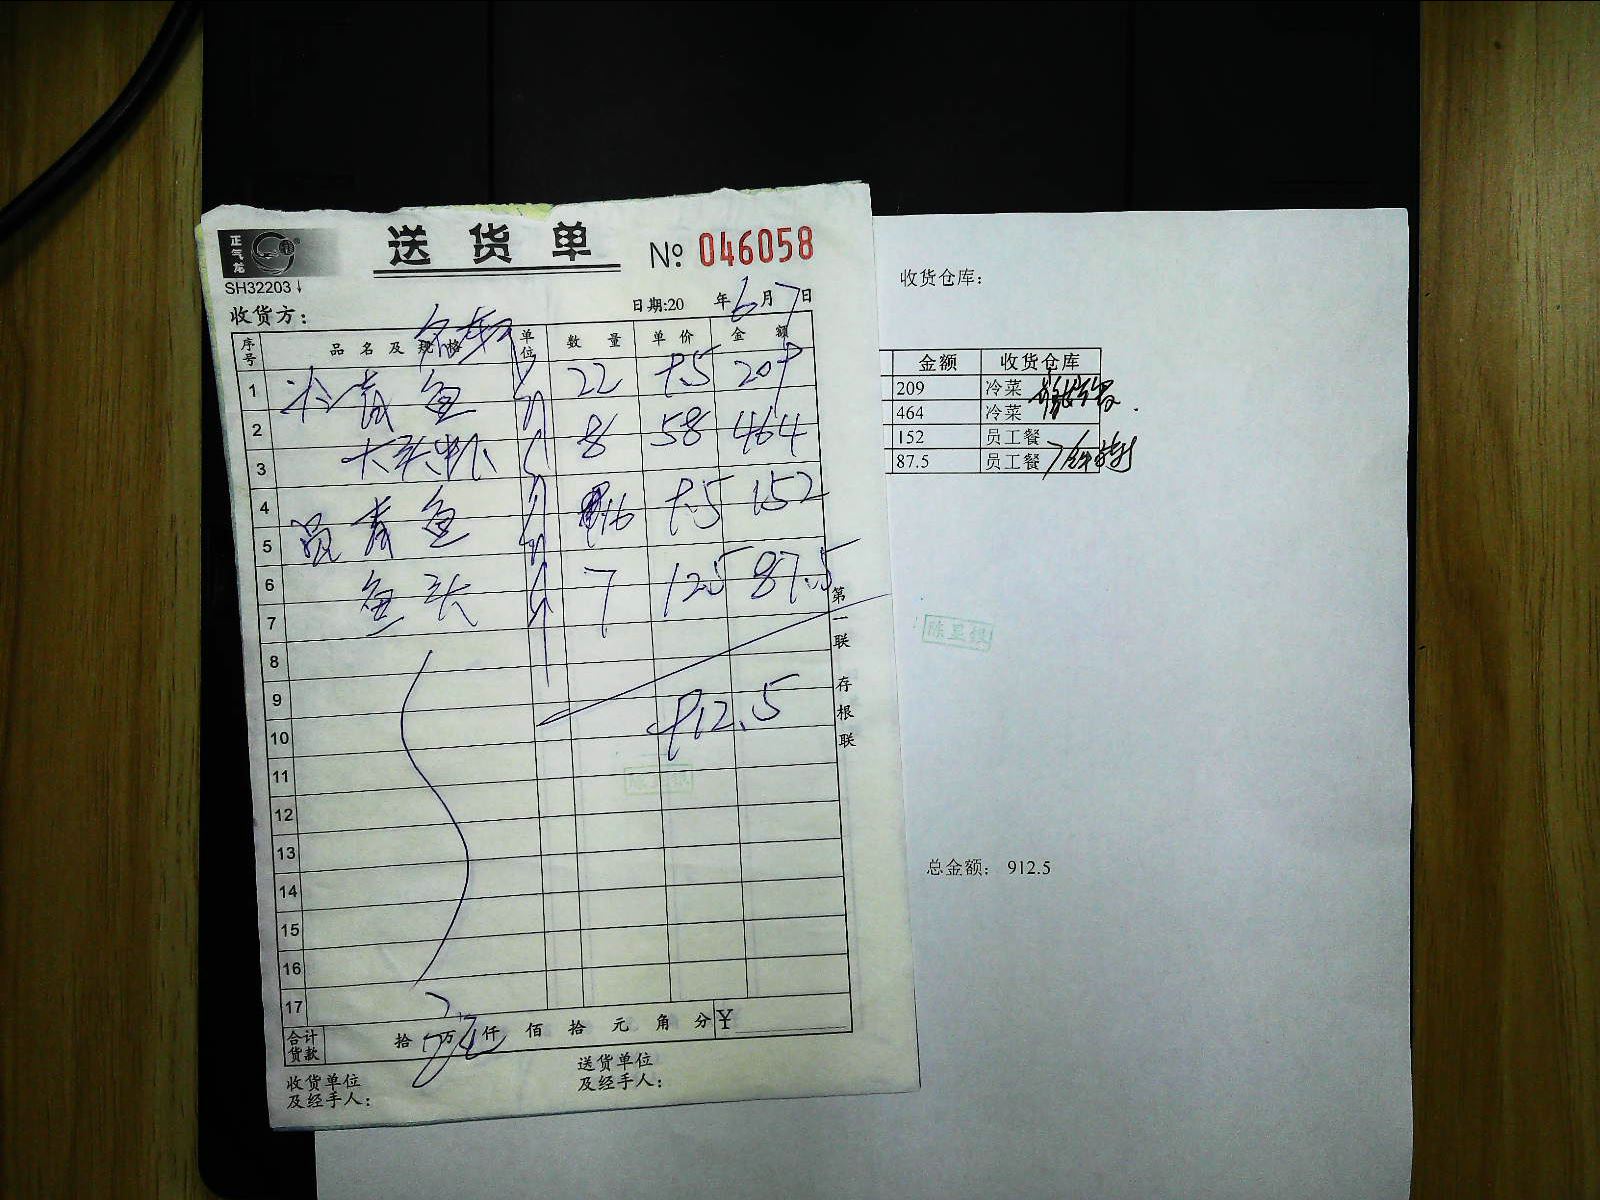 正气龙
送货单 № 046058
SH32203
收货方:
日期:20 年6月7日
序号 品名及规格 单位 数量 单价 金额
1 冷青鱼 22 9.5 209
2 8 58 464
3 大头虾
4 16 9.5 152
5 员青鱼
6 鱼头 7 12.5 87.5
7
8
9
10 912.5
11
12
13
14
15
16
17
合计货款 拾 万 仟 佰 拾 元 角 分 ¥
收货单位及经手人:
送货单位及经手人:
第一联 存根联
收货仓库:
金额 收货仓库
209 冷菜
464 冷菜
152 员工餐
87.5 员工餐
总金额: 912.5